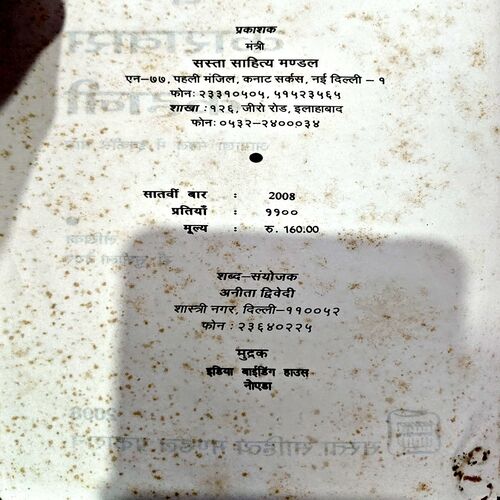 प्रकाशक
मंत्री
सस्ता साहित्य मण्डल
एन–७७, पहली मंजिल, कनाट सर्कस, नई दिल्ली – १
फोनः २३३१०५०५, ५१५२३५६५
शाखा : १२६, जीरो रोड, इलाहाबाद
फोनः ०५३२–२४०००३४
●
सातवीं बार : 2008
प्रतियाँ : ११००
मूल्य : रु. 160.00
शब्द–संयोजक
अनीता द्विवेदी
शास्त्री नगर, दिल्ली–११००५२
फोन : २३६४०२२५
मुद्रक
इंडिया बाईंडिंग हाउस
नोएडा